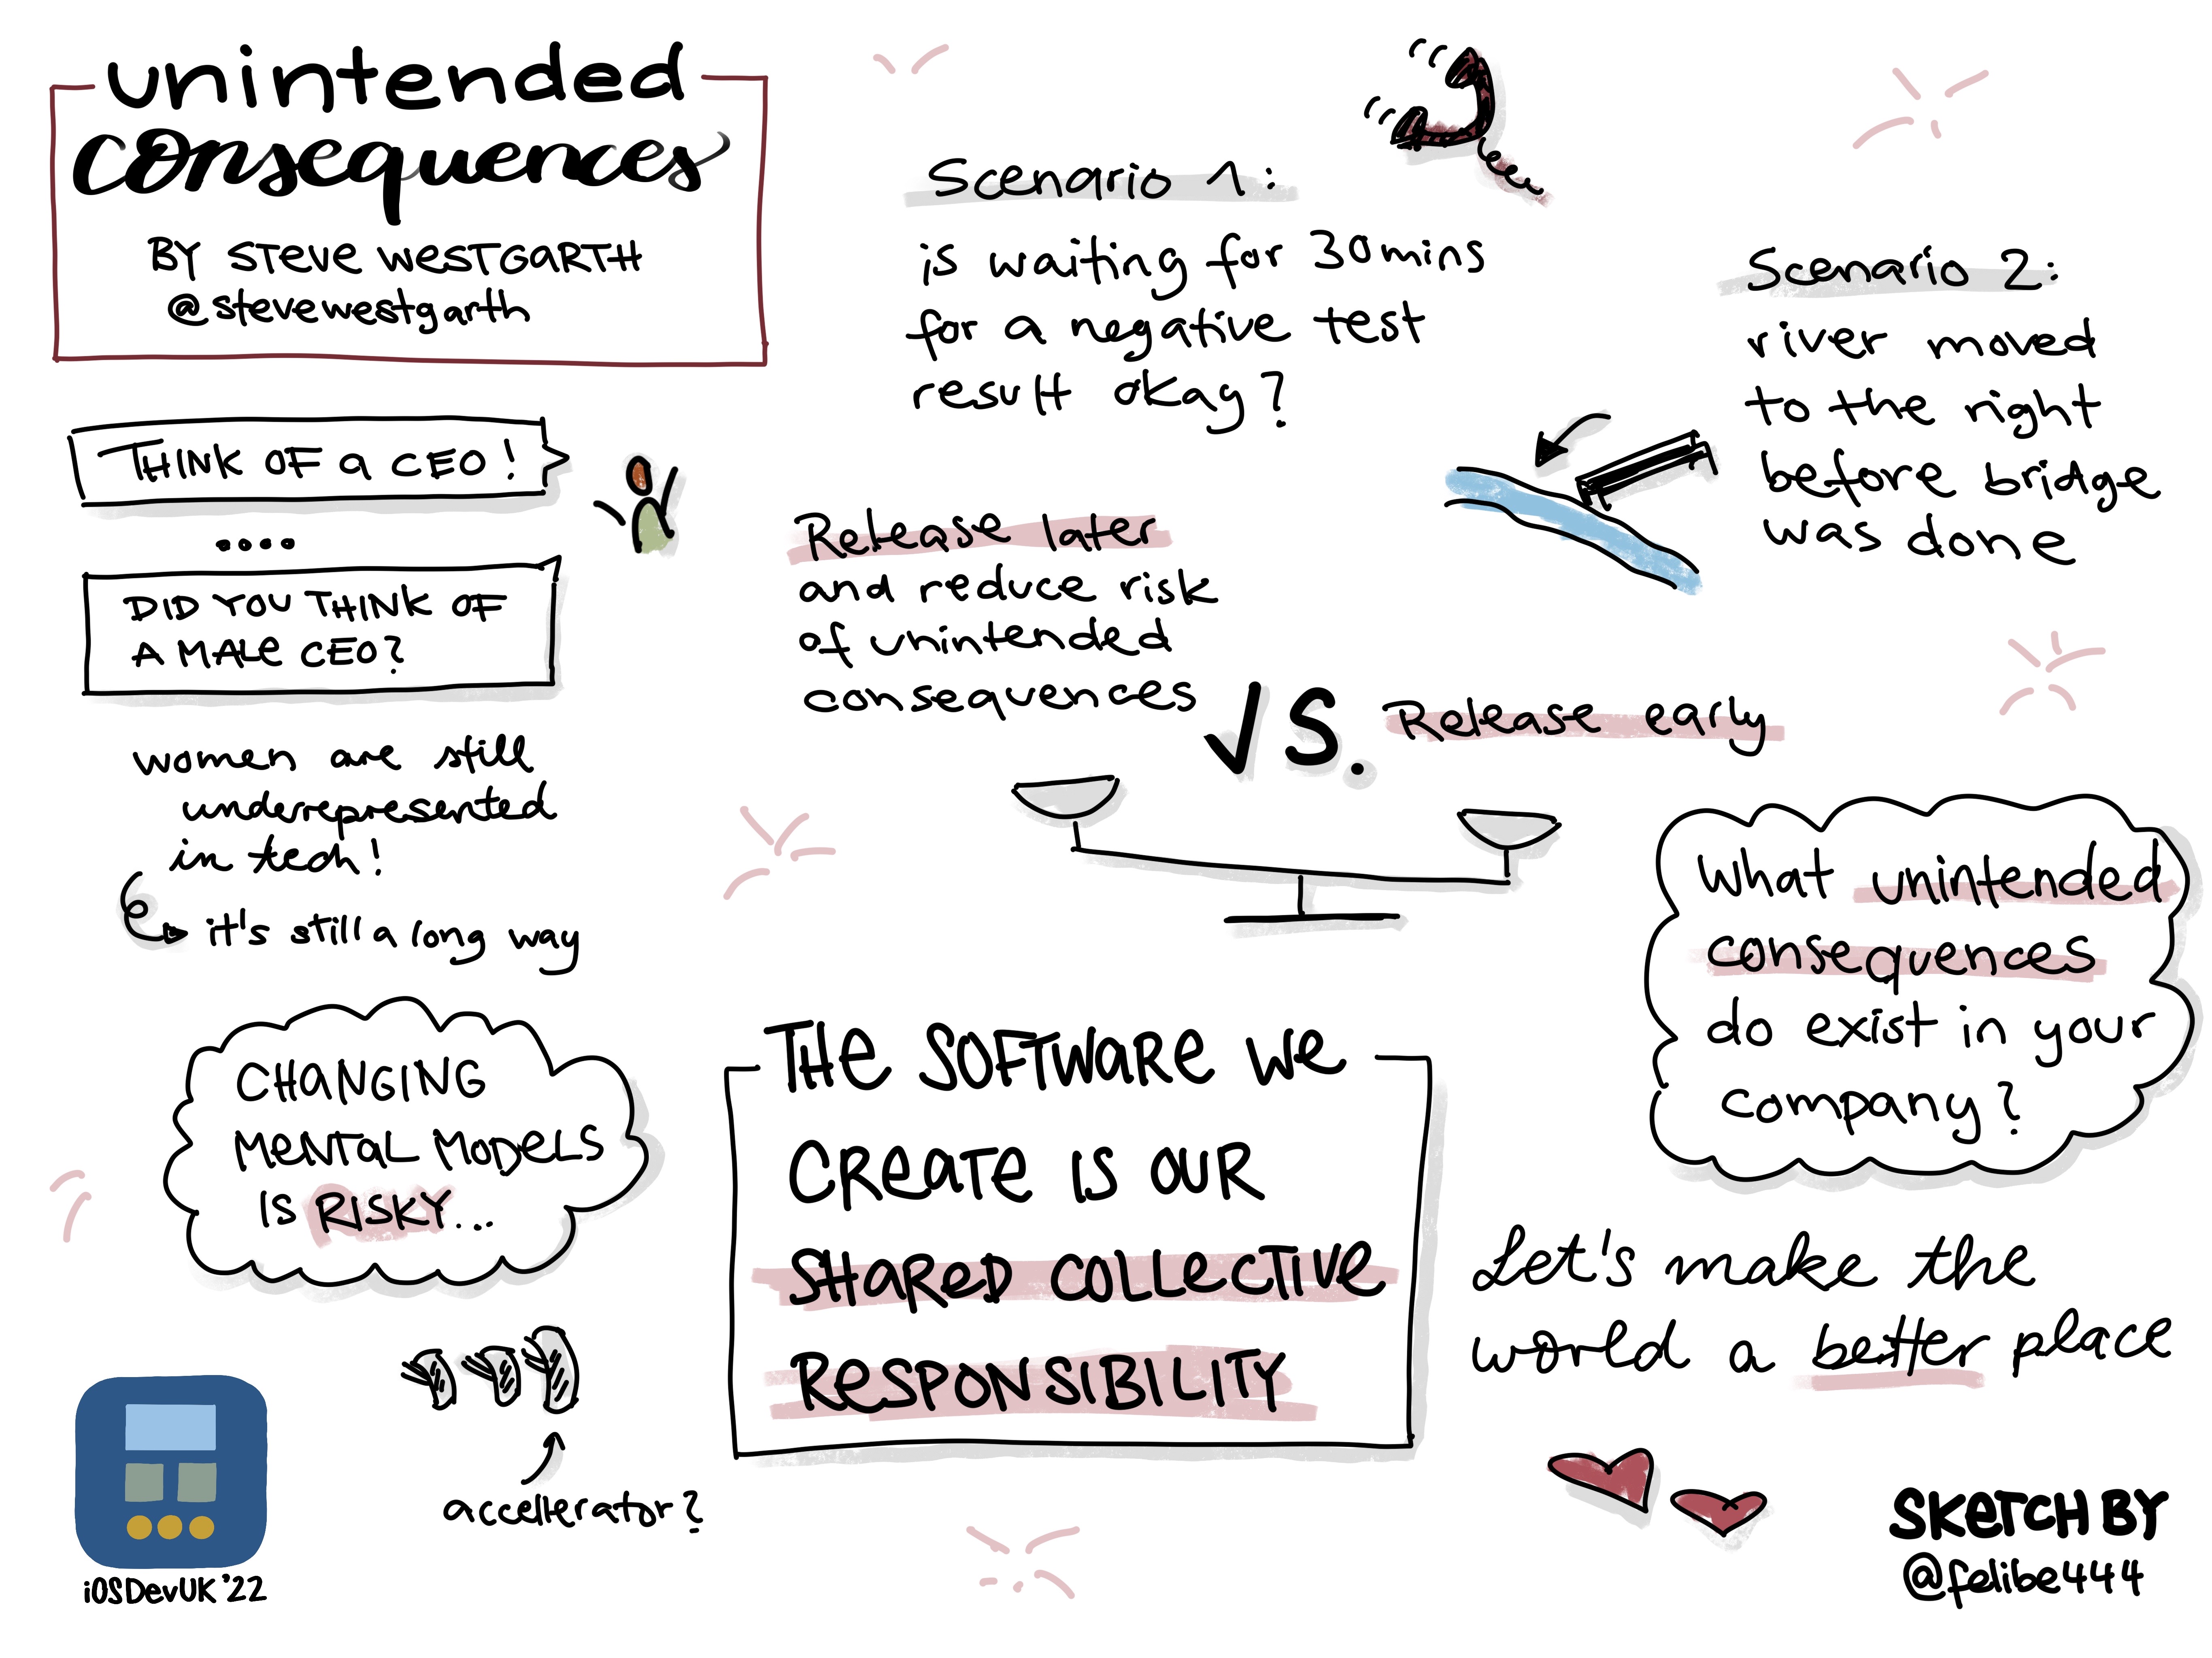 unintended
consequences
BY STEVE WESTGARTH
@stevewestgarth
THINK OF A CEO!
....
DID YOU THINK OF
A MALE CEO?
women are still
underrepresented
in tech!
it's still a long way
CHANGING
MENTAL MODELS
IS RISKY...
accellerator?
iOSDevUK'22
Scenario 1:
is waiting for 30mins
for a negative test
result okay?
Scenario 2:
river moved
to the right
before bridge
was done
Release later
and reduce risk
of unintended
consequences
VS.
Release early
THE SOFTWARE WE
CREATE IS OUR
SHARED COLLECTIVE
RESPONSIBILITY
What unintended
consequences
do exist in your
company?
Let's make the
world a better place
SKETCH BY
@felibe444